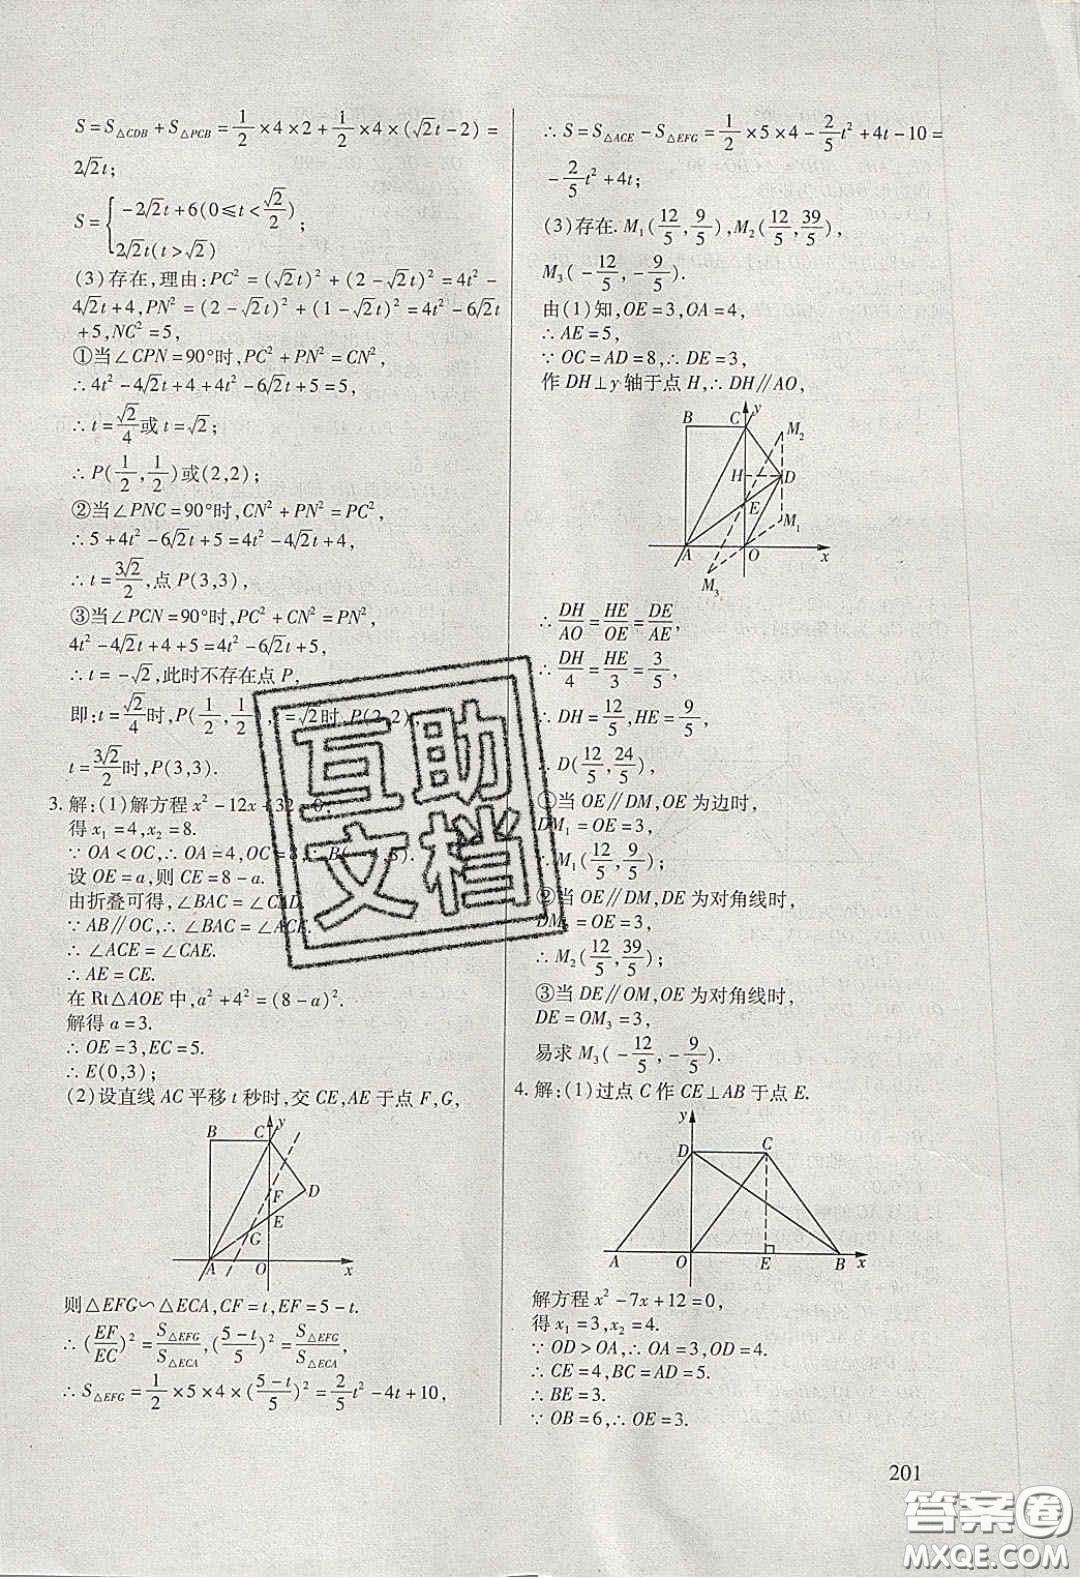 S=S△CDB+S△PCB=1/2×4×2+1/2×4×(√2t-2)=
2√2t;
S={-2√2t+6(0≤t<√2/2)
2√2t(t>√2) ;
(3)存在,理由:PC²=(√2t)²+(2-√2t)²=4t²-
4√2t+4,PN²=(2-√2t)²+(1-√2t)²=4t²-6√2t
+5,NC²=5,
①当∠CPN=90°时,PC²+PN²=CN²,
∴4t²-4√2t+4+4t²-6√2t+5=5,
∴t=√2/4或t=√2;
∴P(1/2,1/2)或(2,2);
②当∠PNC=90°时,CN²+PN²=PC²,
∴5+4t²-6√2t+5=4t²-4√2t+4,
∴t=3√2/2,点P(3,3),
③当∠PCN=90°时,PC²+CN²=PN²,
4t²-4√2t+4+5=4t²-6√2t+5,
∴t=-√2,此时不存在点P,
即:t=√2/4时,P(1/2,1/2),t=√2时,P(2,2),
t=3√2/2时,P(3,3).
3.解:(1)解方程x²-12x+32=0,
得x₁=4,x₂=8.
∵OA<OC,∴OA=4,OC=8,∴B( ,8).
设OE=a,则CE=8-a.
由折叠可得,∠BAC=∠CAD.
∵AB∥OC,∴∠BAC=∠ACE.
∴∠ACE=∠CAE.
∴AE=CE.
在Rt△AOE中,a²+4²=(8-a)².
解得a=3.
∴OE=3,EC=5.
∴E(0,3);
(2)设直线AC平移t秒时,交CE,AE于点F,G,
y
B C
F D
E
G
A O x
则△EFG∽△ECA,CF=t,EF=5-t.
∴(EF/EC)²=S△EFG/S△ECA,((5-t)/5)²=S△EFG/S△ECA,
∴S△EFG=1/2×5×4×((5-t)/5)²=2/5t²-4t+10,
∴S=S△ACE-S△EFG=1/2×5×4-2/5t²+4t-10=
-2/5t²+4t;
(3)存在.M₁(12/5,9/5),M₂(12/5,39/5),
M₃(-12/5,-9/5).
由(1)知,OE=3,OA=4,
∴AE=5,
∵OC=AD=8,∴DE=3,
作DH⊥y轴于点H,∴DH∥AO,
B C y
M₂
H D
E
M₁
A O x
M₃
∴DH/AO=HE/OE=DE/AE,
∴DH/4=HE/3=3/5,
∴DH=12/5,HE=9/5,
∴D(12/5,24/5),
①当OE∥DM,OE为边时,
DM₁=OE=3,
∴M₁(12/5,9/5);
②当OE∥DM,DE为对角线时,
DM₂=OE=3,
∴M₂(12/5,39/5);
③当DE∥OM,OE为对角线时,
DE=OM₃=3,
易求M₃(-12/5,-9/5).
4.解:(1)过点C作CE⊥AB于点E.
y
D C
A O E B x
解方程x²-7x+12=0,
得x₁=3,x₂=4.
∵OD>OA,∴OA=3,OD=4.
∴CE=4,BC=AD=5.
∴BE=3.
∵OB=6,∴OE=3.
201
互助
文档
答案圈
MXQE.COM